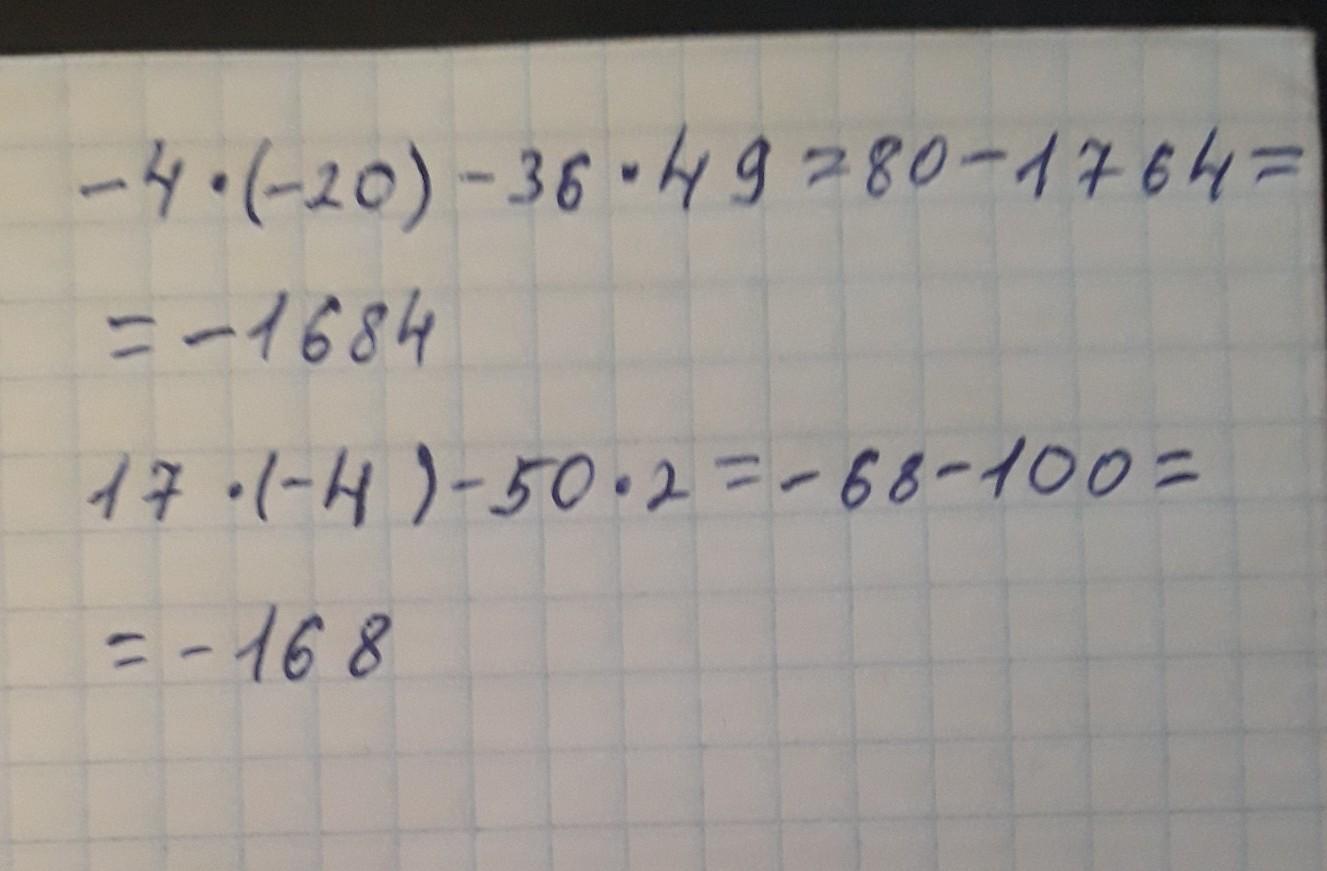 -4·(-20)-36·49=80-1764=
=-1684
17·(-4)-50·2=-68-100=
=-168